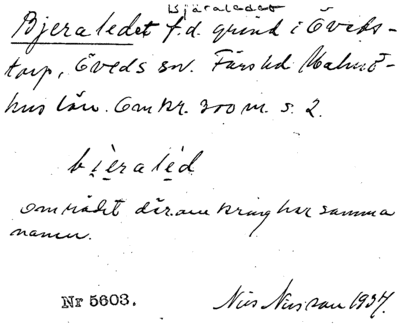 Bjäraledet
Bjeraledet f.d. grind i Öveds-
torp, Öveds sn. Färs hd Malmö-
hus län. Omkr. 300 m. s. 2.
bi̯èralèd
området däromkring har samma
namn.
Nr 5603. Nils Nilsson 1937.